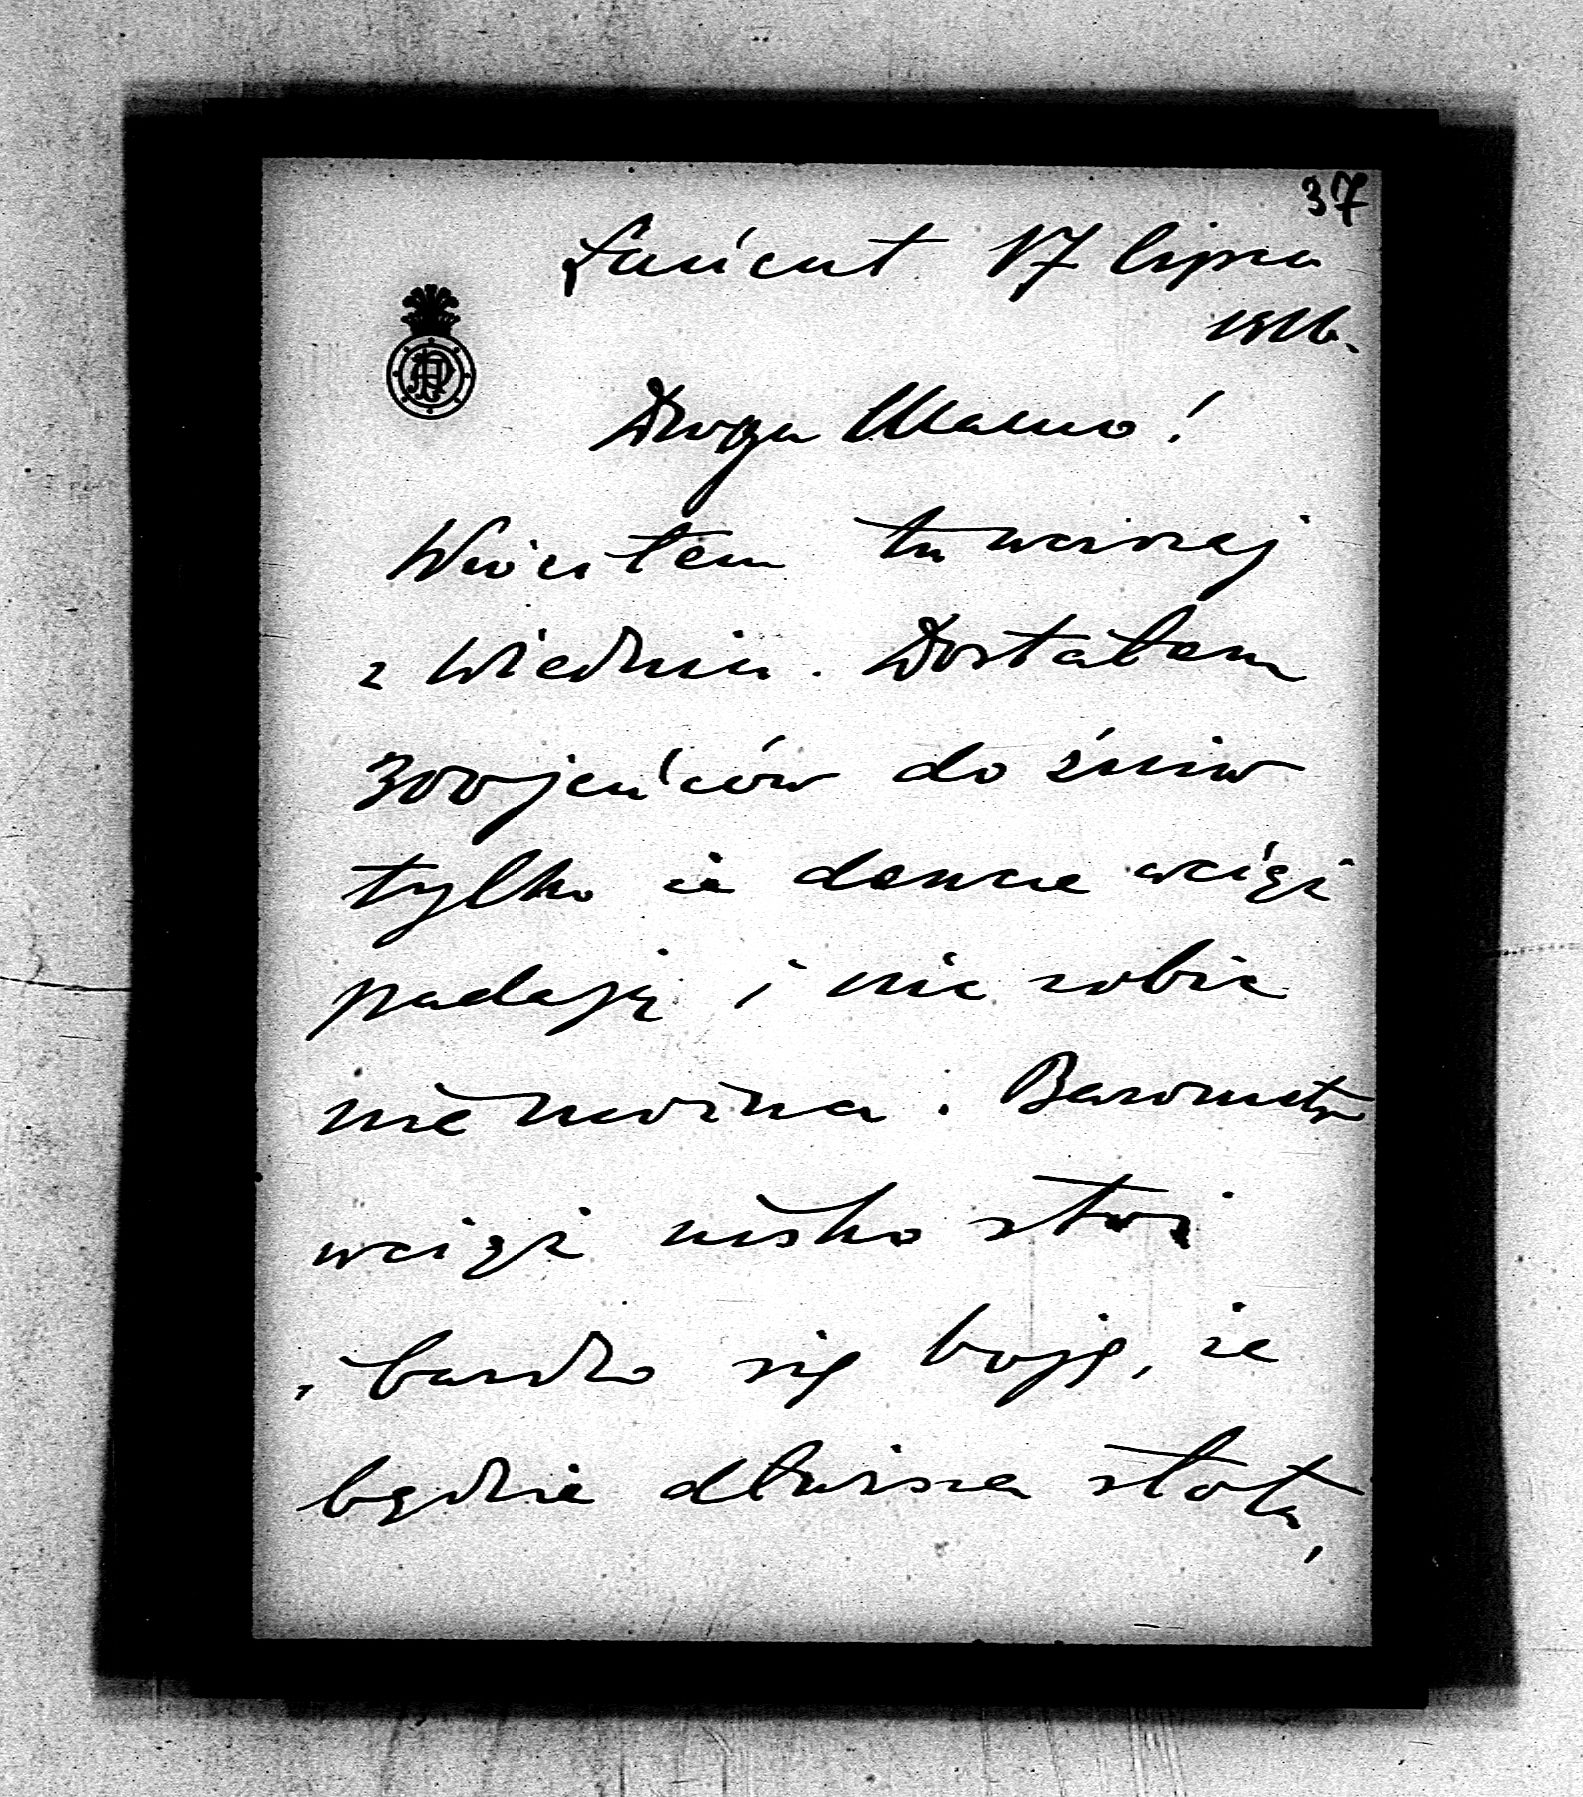 37
Łańcut 17 lipca
1916.
Droga Mamo!
Wróciłem tu wczoraj
z Wiednia. Dostałem
300 jeńców do żniw
tylko że deszcze wciąż
padają i nic robić
nie można. Barometr
wciąż nisko stoi
i bardzo się boję, że
będzie dłuższa słota,